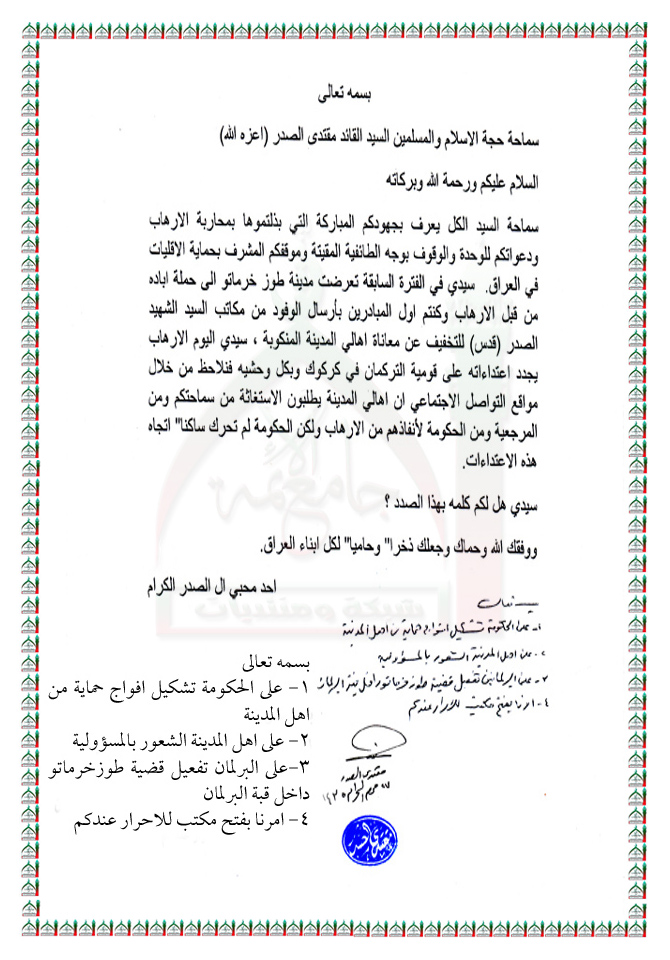 بسمه تعالى
سماحة حجة الاسلام والمسلمين السيد القائد مقتدى الصدر (اعزه الله)
السلام عليكم ورحمة الله وبركاته
سماحة السيد الكل يعرف بجهودكم المباركة التي بذلتموها بمحاربة الارهاب
ودعواتكم للوحدة والوقوف بوجه الطائفية المقيتة وموقفكم المشرف بحماية الاقليات
في العراق. سيدي في الفترة السابقة تعرضت مدينة طوز خرماتو الى حملة اباده
من قبل الارهاب وكنتم اول المبادرين بأرسال الوفود من مكاتب السيد الشهيد
الصدر (قدس) للتخفيف عن معاناة اهالي المدينة المنكوبة ، سيدي اليوم الارهاب
يجدد اعتداءاته على قومية التركمان في كركوك وبكل وحشيه فنلاحظ من خلال
مواقع التواصل الاجتماعي ان اهالي المدينة يطلبون الاستغاثة من سماحتكم ومن
المرجعية ومن الحكومة لأنفاذهم من الارهاب ولكن الحكومة لم تحرك ساكنا" اتجاه
هذه الاعتداءات.
سيدي هل لكم كلمه بهذا الصدد ؟
ووفقك الله وحماك وجعلك ذخرا" وحاميا" لكل ابناء العراق.
احد محبي ال الصدر الكرام
بسمه تعالى
١- على الحكومة تشكيل افواج حماية من اهل المدينة
٢- على اهل المدينة الشعور بالمسؤولية
٣- على البرلمان تفعيل قضية طوزخرماتو داخل قبة البرلمان
٤- امرنا بفتح مكتب للاحرار عندكم
مقتدى الصدر
بسمه تعالى
١- على الحكومة تشكيل افواج حماية من
اهل المدينة
٢- على اهل المدينة الشعور بالمسؤولية
٣-على البرلمان تفعيل قضية طوزخرماتو
داخل قبة البرلمان
٤- امرنا بفتح مكتب للاحرار عندكم
جامع الأئمة
شبكة ومنتديات